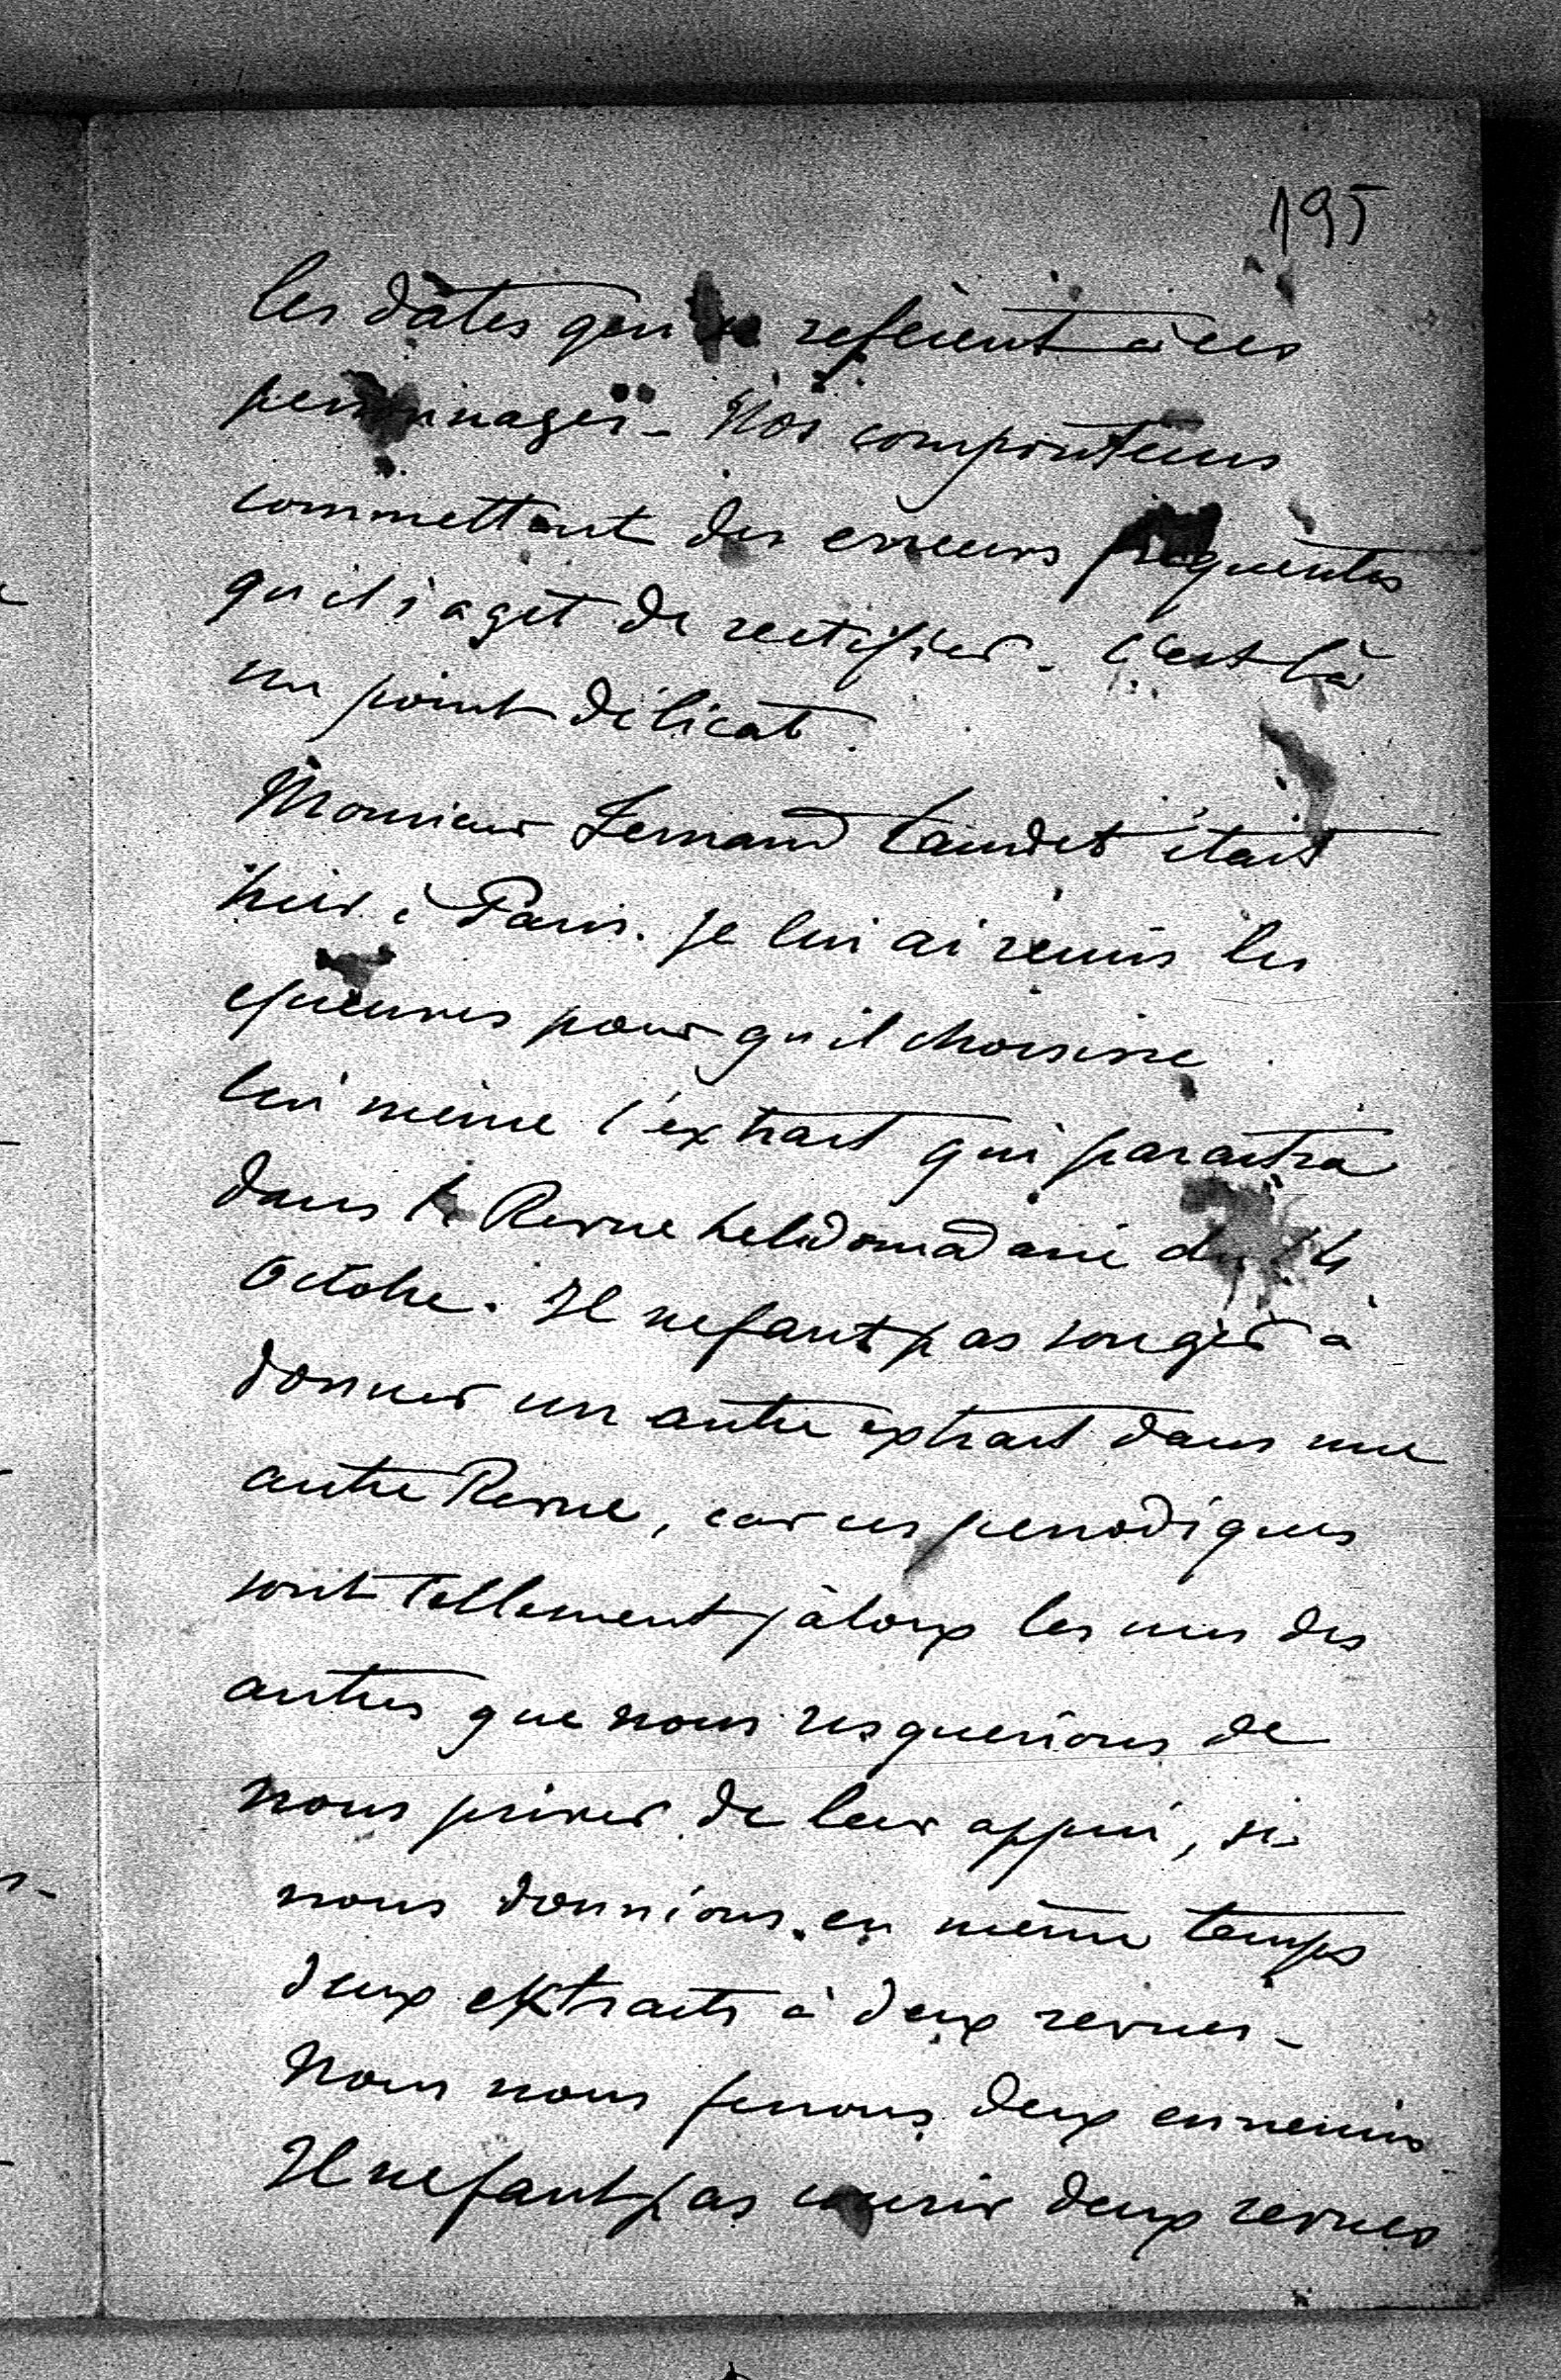 195
les dates qui se refèrent à ces
personnages - Nos compositeurs
commettent des erreurs fréquentes
qu'il s'agit de rectifier. C'est là
un point délicat.
Monsieur Fernand Laudet était
hier à Paris. Je lui ai remis les
épreuves pour qu'il choisisse
lui même l'extrait qui paraîtra
dans la Revue hebdomadaire du
Octobre. Il ne faut pas songer à
donner un autre extrait dans une
autre Revue, car ces periodiques
sont tellement jaloux les uns des
autres que nous risquerions de
nous priver de leur appui, si
nous donnions en même temps
deux extraits à deux revues -
Nous nous ferions deux ennemis
Il ne faut pas courir deux revues